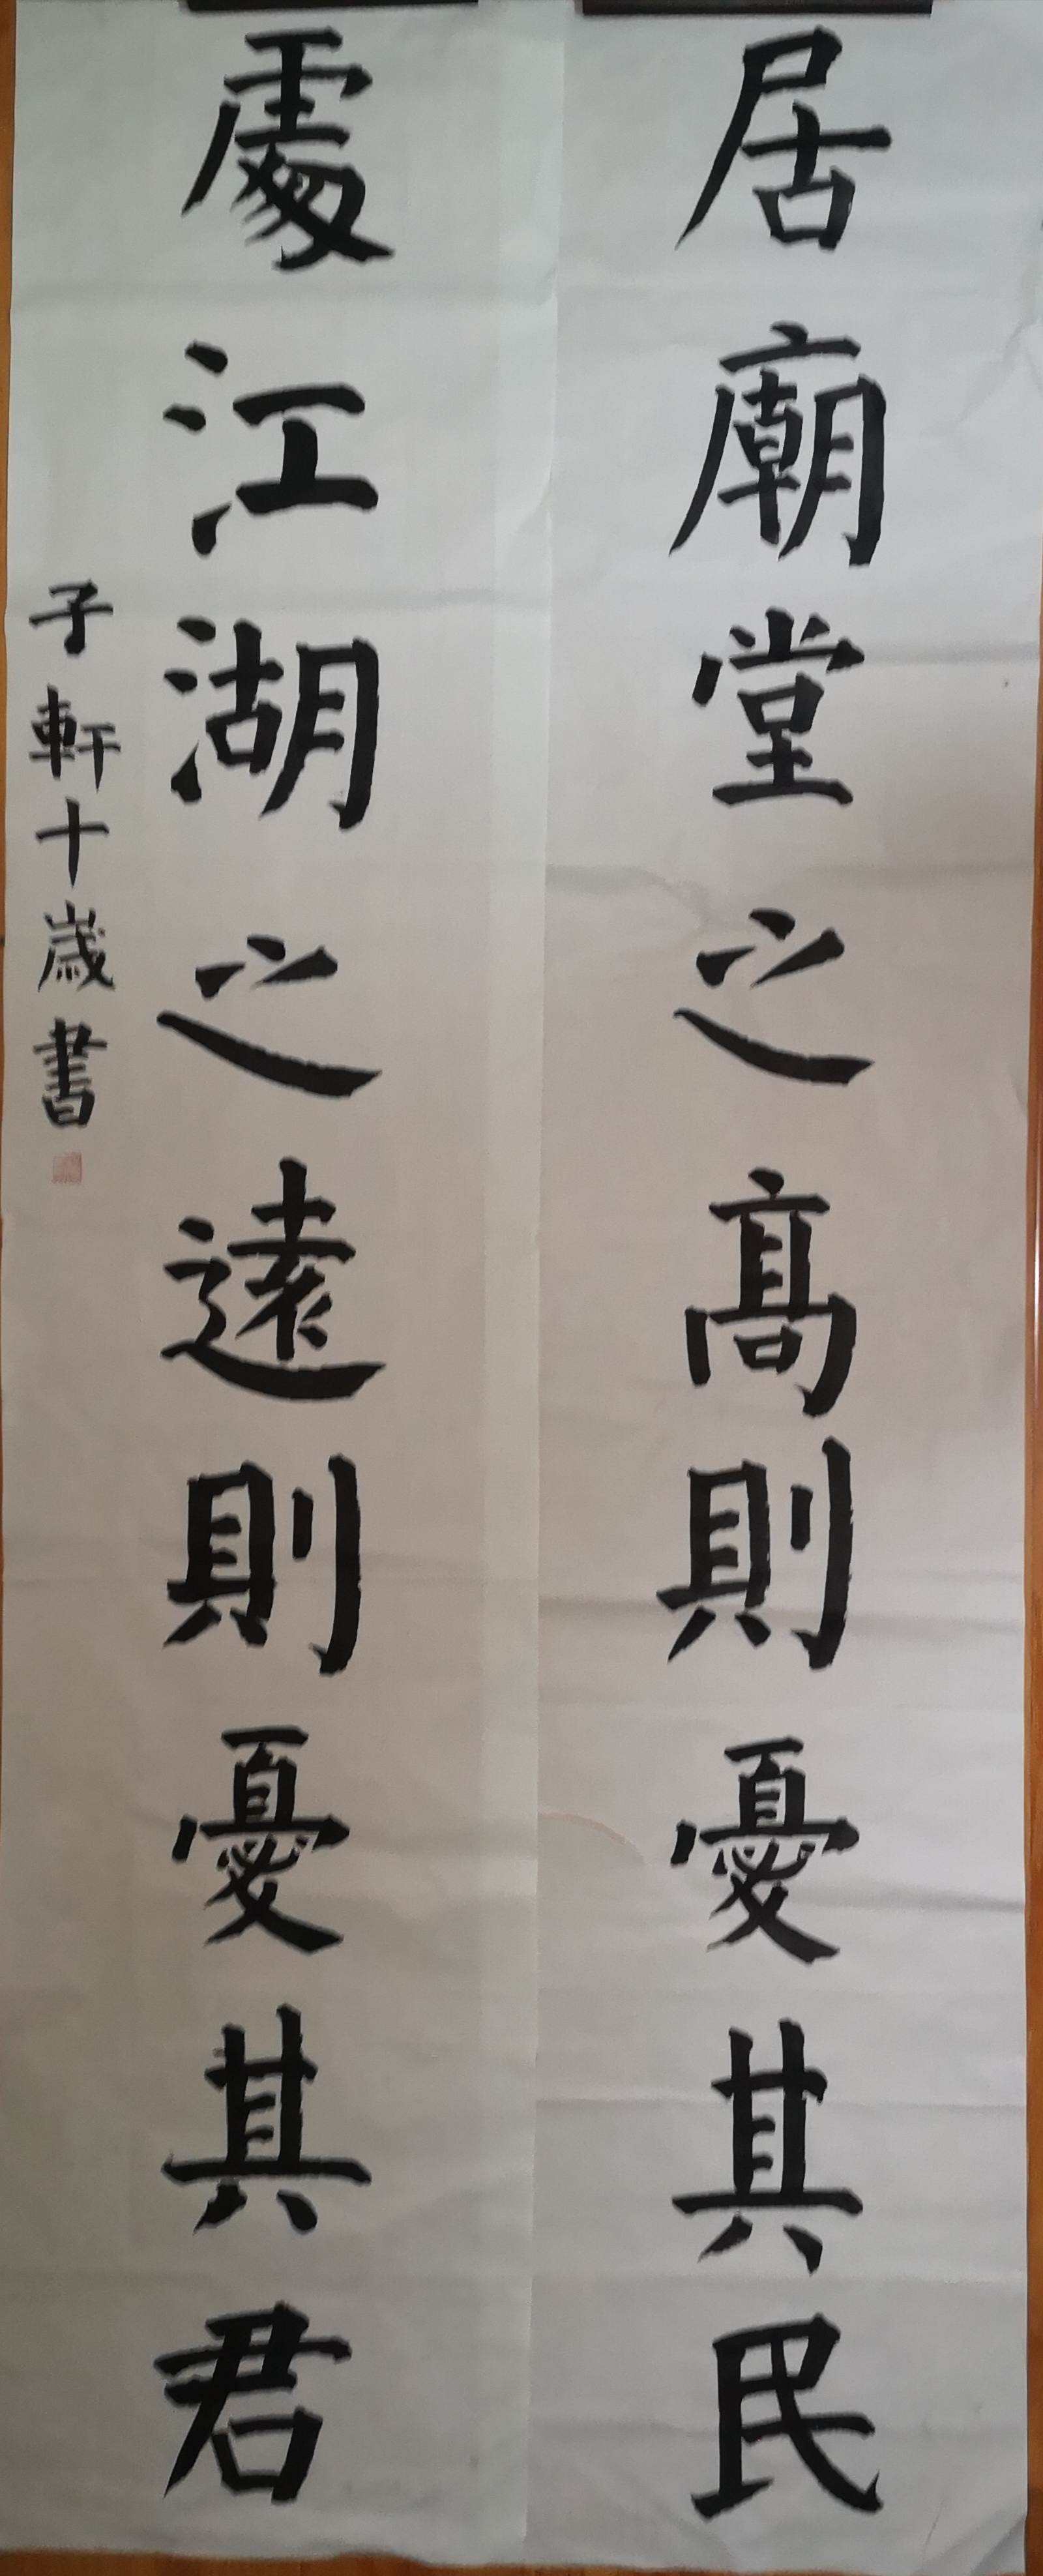 居廟堂之高則憂其民
處江湖之遠則憂其君
子軒十歲書